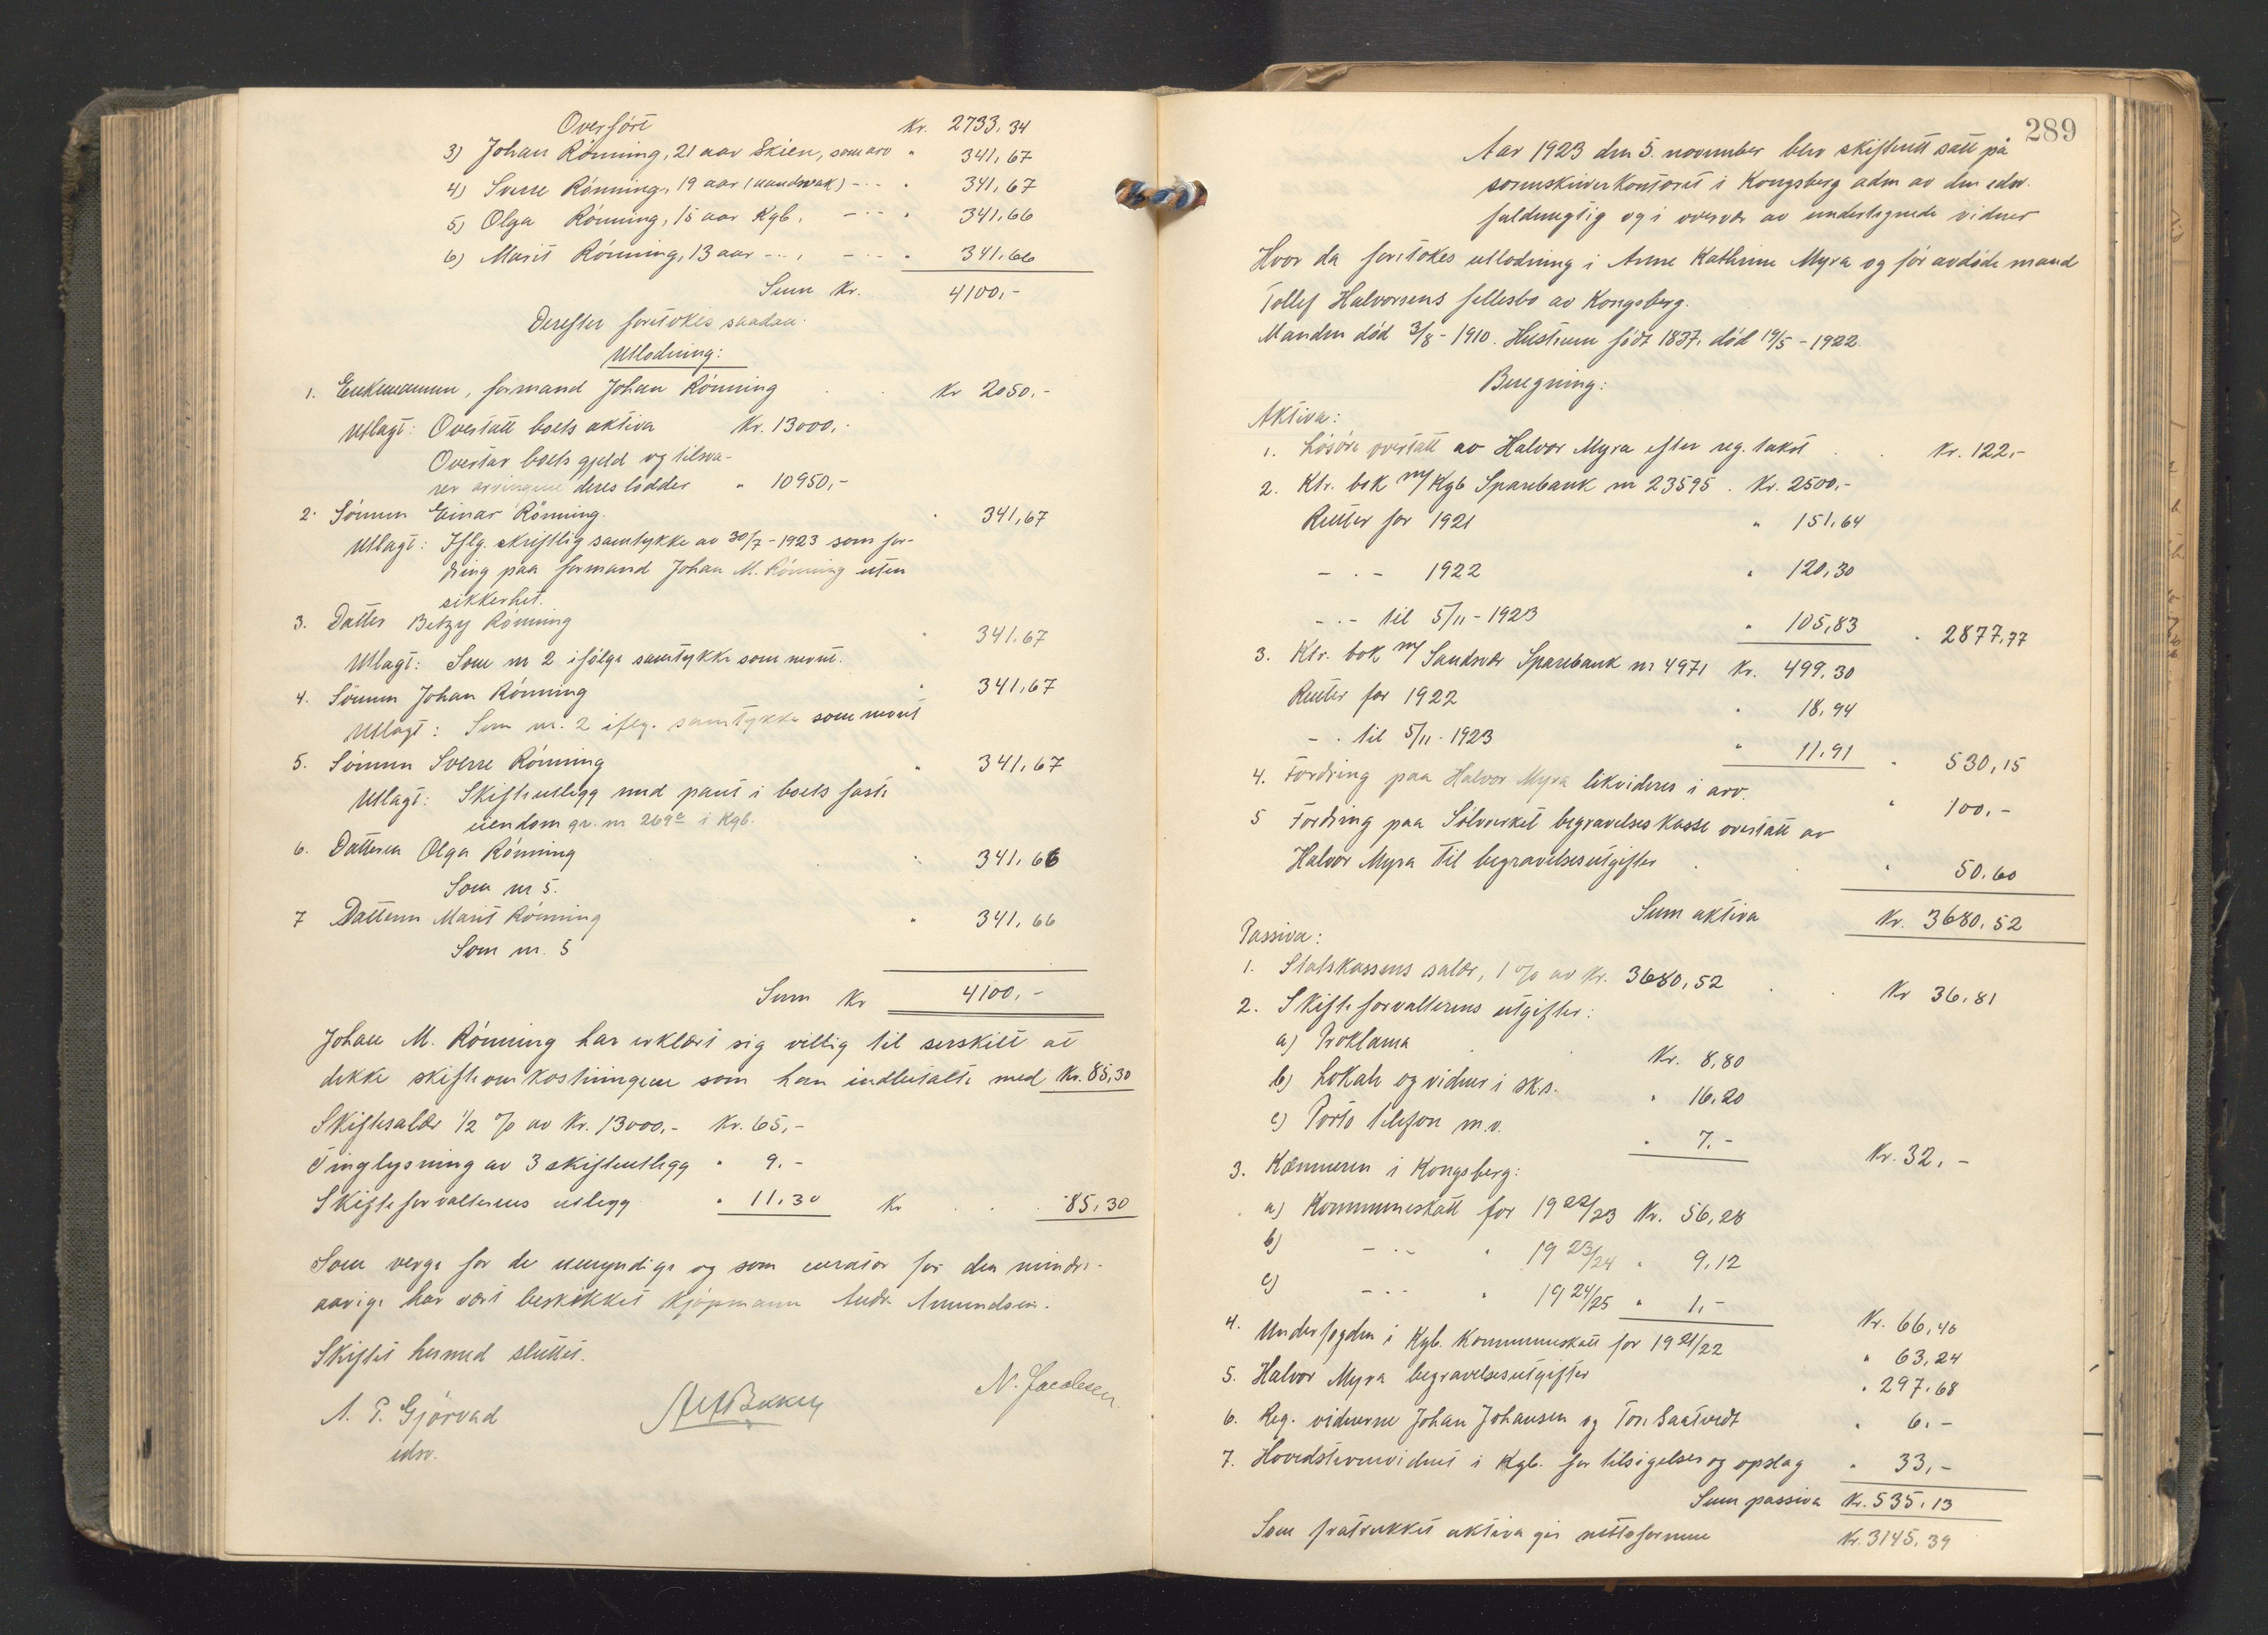 Overført Kr. 2733,34
3) Johan Rönning, 21 aar Skien, som arv " 341,67
4) Sverre Rönning, 19 aar (aandsvak) - .. - " 341,67
5) Olga Rönning, 15 aar Kgb. - .. - " 341,66
6) Marit Rönning, 13 aar - .. , - .. - " 341,66
Sum Kr. 4100,-
Derefter foretokes saadan
Utlodning:
1. Enkemannen, formand Johan Rönning Kr 2050.-
Utlagt: Overtatt boets aktiva Kr. 13000,-
Overtar boets gjeld og tilsva-
rer arvingene deres lodder " 10950,-
2. Sönnen Einar Rönning. " 341,67
Utlagt: Iflg. skriftlig samtykke av 30/7-1923 som for-
dring paa formand Johan M. Rönning uten
sikkerhet.
3. Datter Betzy Rönning " 341,67
Utlagt: Som nr 2 ifölge samtykke som nevnt.
4. Sönnen Johan Rönning " 341,67
Utlagt: Som nr. 2 iflg. samtykke som nevnt
5. Sönnen Sverre Rönning " 341,67
Utlagt: Skifteutlegg med pant i boets faste
eiendom gr. nr 269a i Kgb.
6. Datteren Olga Rönning " 341,66
Som nr 5.
7 Datteren Marit Rönning " 341,66
Som nr. 5
Sum Kr 4100,-
Johan M. Rönning har erklært sig villig til særskilt at
dekke skifteomkostningene som han indbetalte med Kr. 85,30
Skiftesalær 1/2 % av Kr. 13000,- Kr. 65,-
Tinglysning av 3 skifteutlegg " 9.-
Skifteforvalterens utlegg " 11.30 Kr 85,30
Som verge for de umyndige og som curator for den mindre-
aarige har vært beskikket kjøpmann Andr. Amundsen.
Skiftet hermed sluttet.
A. T. Gjörvad N. Jacobsen
edsv.
289
Aar 1923 den 5. november blev skifterett satt på
sorenskriverkontoret i Kongsberg adm av den edsv.
fuldmegtig og i overvær av undertegnede vidner
Hvor da foretokes utlodning i Anne Kathrine Myra og før avdöde mand
Tollef Halvorsens fellesbo av Kongsberg.
Manden död 3/8-1910. Hustruen födt 1837. död 19/5-1922.
Beregning:
Aktiva:
1. Lösöre overtatt av Halvor Myra efter reg. takst Kr. 122,-
2. Ktr. bok m/ Kgb Sparebank nr 23595. Kr. 2500,-
Renter for 1921 " 151,64
- . - 1922 " 120,30
- . - til 5/11-1923 " 105,83 " 2877,77
3. Ktr. bok m/ Sandsvær Sparebank nr 4971 Kr. 499,30
Renter for 1922 " 18,94
- . til 5/11-1923 " 11.91 " 530,15
4. Fordring paa Halvor Myra likvideres i arv. " 100,-
5 Fordring paa Sölvverket begravelseskasse overtatt av
Halvor Myra til begravelsesutgifter " 50.60
Sum aktiva Kr. 3680,52
Passiva:
1. Statskassens salær, 1 % av Kr. 3680,52 Kr 36,81
2. Skifteforvalterens utgifter:
a) Proklama Kr. 8,80
b) Lokale og vidner i sk.s. " 16.20
c) Porto telefon m.v. " 7.- Kr. 32,-
3. Kæmneren i Kongsberg:
a) Kommuneskatt for 1922/23 Kr. 56,28
b) - .. - " 1923/24 " 9,12
c) - .. - " 1924/25 " 1,- Kr. 66,40
4. Underfogden i Kgb. Kommuneskatt for 1921/22 " 63,24
5. Halvor Myra begravelsesutgifter " 297.68
6. Reg. vidnerne Johan Johansen og Tor Saatvedt " 6.-
7. Hovedstevnevidnet i Kgb. for tilsigelser og opslag " 33,-
Sum passiva Kr. 535,13
Som fratrukket aktiva gir nettoformue Kr. 3145,39